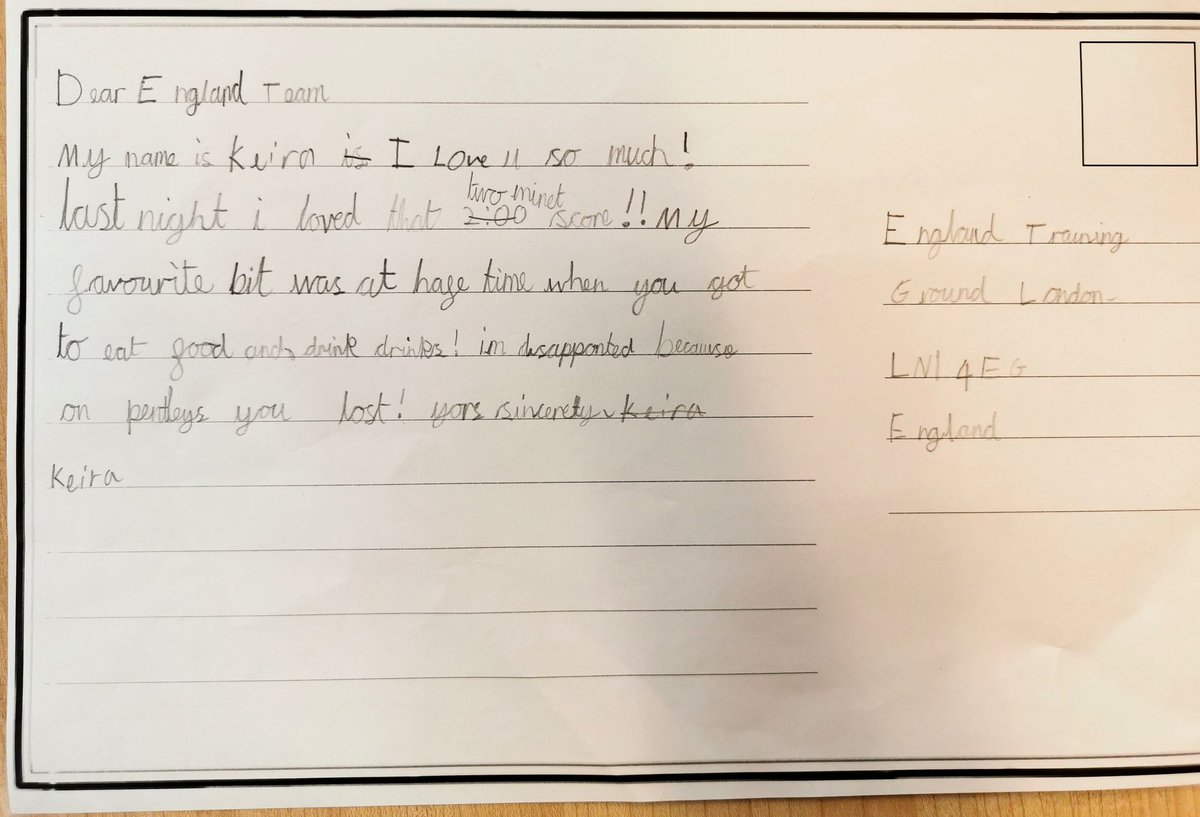 Dear England Team
My name is Keira is I Love u so much!
two minet
last night i loved that 2:00 score!! My
favourite bit was at hafe time when you got
to eat good and drink drinks! im disapponted because
on pentleys you lost! yors sincerety Keira
Keira
England Training
Ground London
LN1 4EG
England